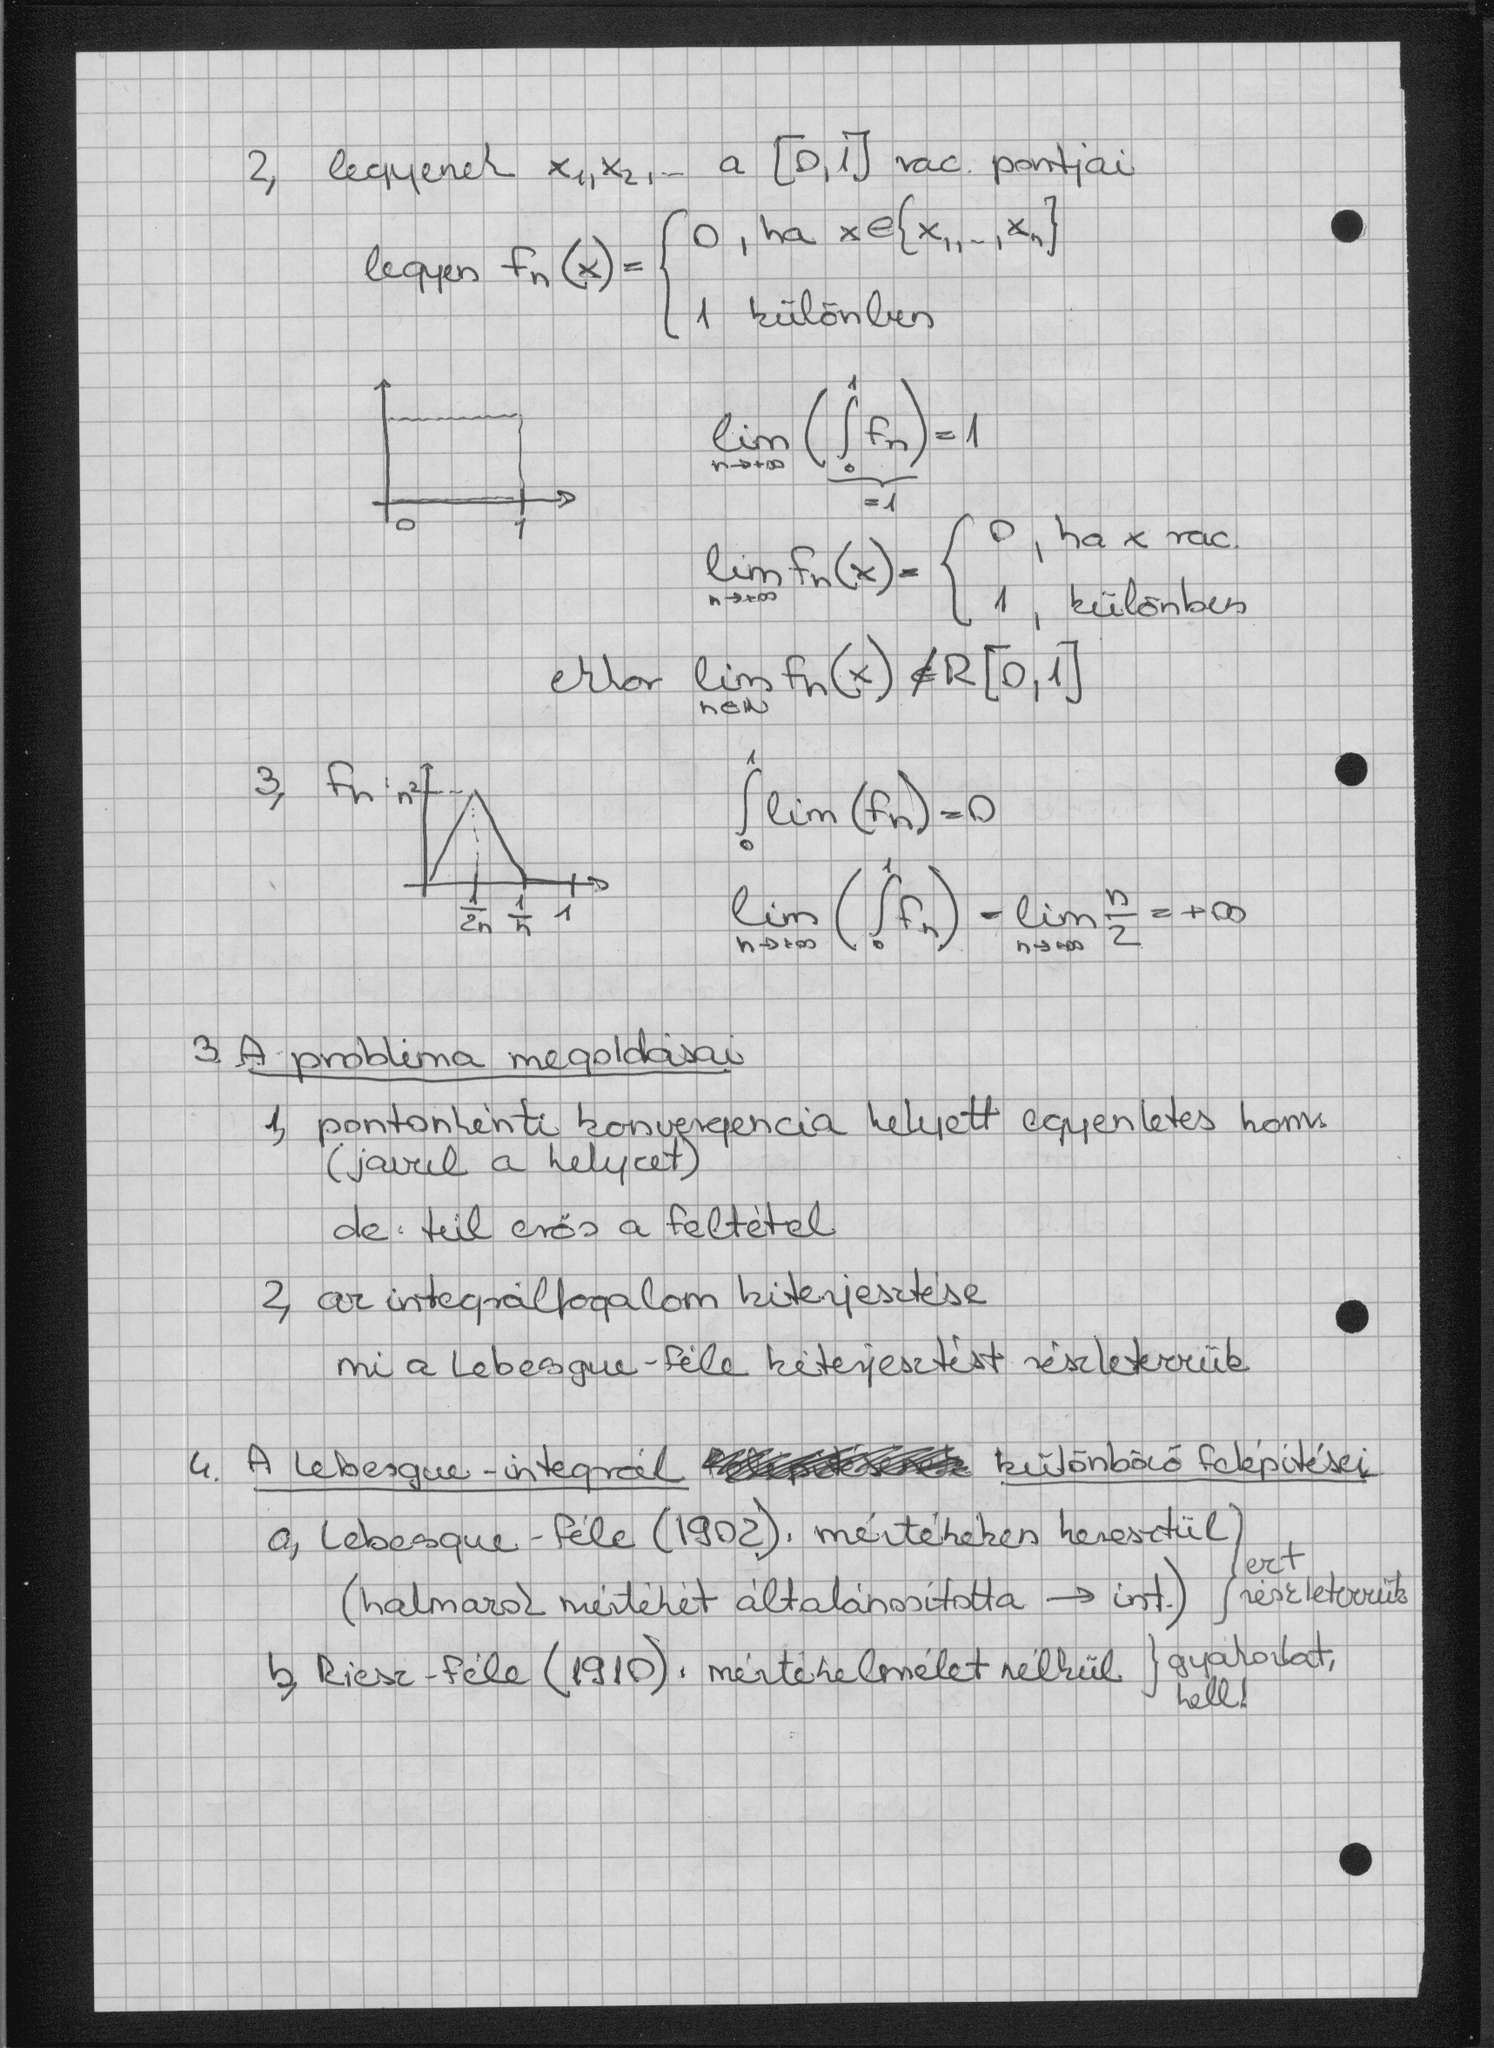 2, legyenek x₁, x₂, … a [0,1] rac. pontjai
legyen fₙ(x) = { 0, ha x∈{x₁, …, xₙ}
1 különben
0 1
lim n→+∞ (∫₀¹ fₙ) = 1
=1
lim n→+∞ fₙ(x) = { 0, ha x rac.
1, különben
ekkor lim n∈ℕ fₙ(x) ∉ R[0,1]
3, fₙ: n²
1/2n 1/n 1
∫₀¹ lim (fₙ) = 0
lim n→+∞ (∫₀¹ fₙ) = lim n→+∞ n/2 = +∞
3. A probléma megoldásai
1, pontonkénti konvergencia helyett egyenletes konv.
(javul a helyzet)
de: túl erős a feltétel
2, az integrálfogalom kiterjesztése
mi a Lebesgue-féle kiterjesztést részletezzük
4. A Lebesgue-integrál különböző felépítései
a, Lebesgue-féle (1902): mértékeken keresztül
(halmazok mértékét általánosította → int.) } ezt
részletezzük
b, Riesz-féle (1910): mértékelmélet nélkül } gyakorlat,
kell!